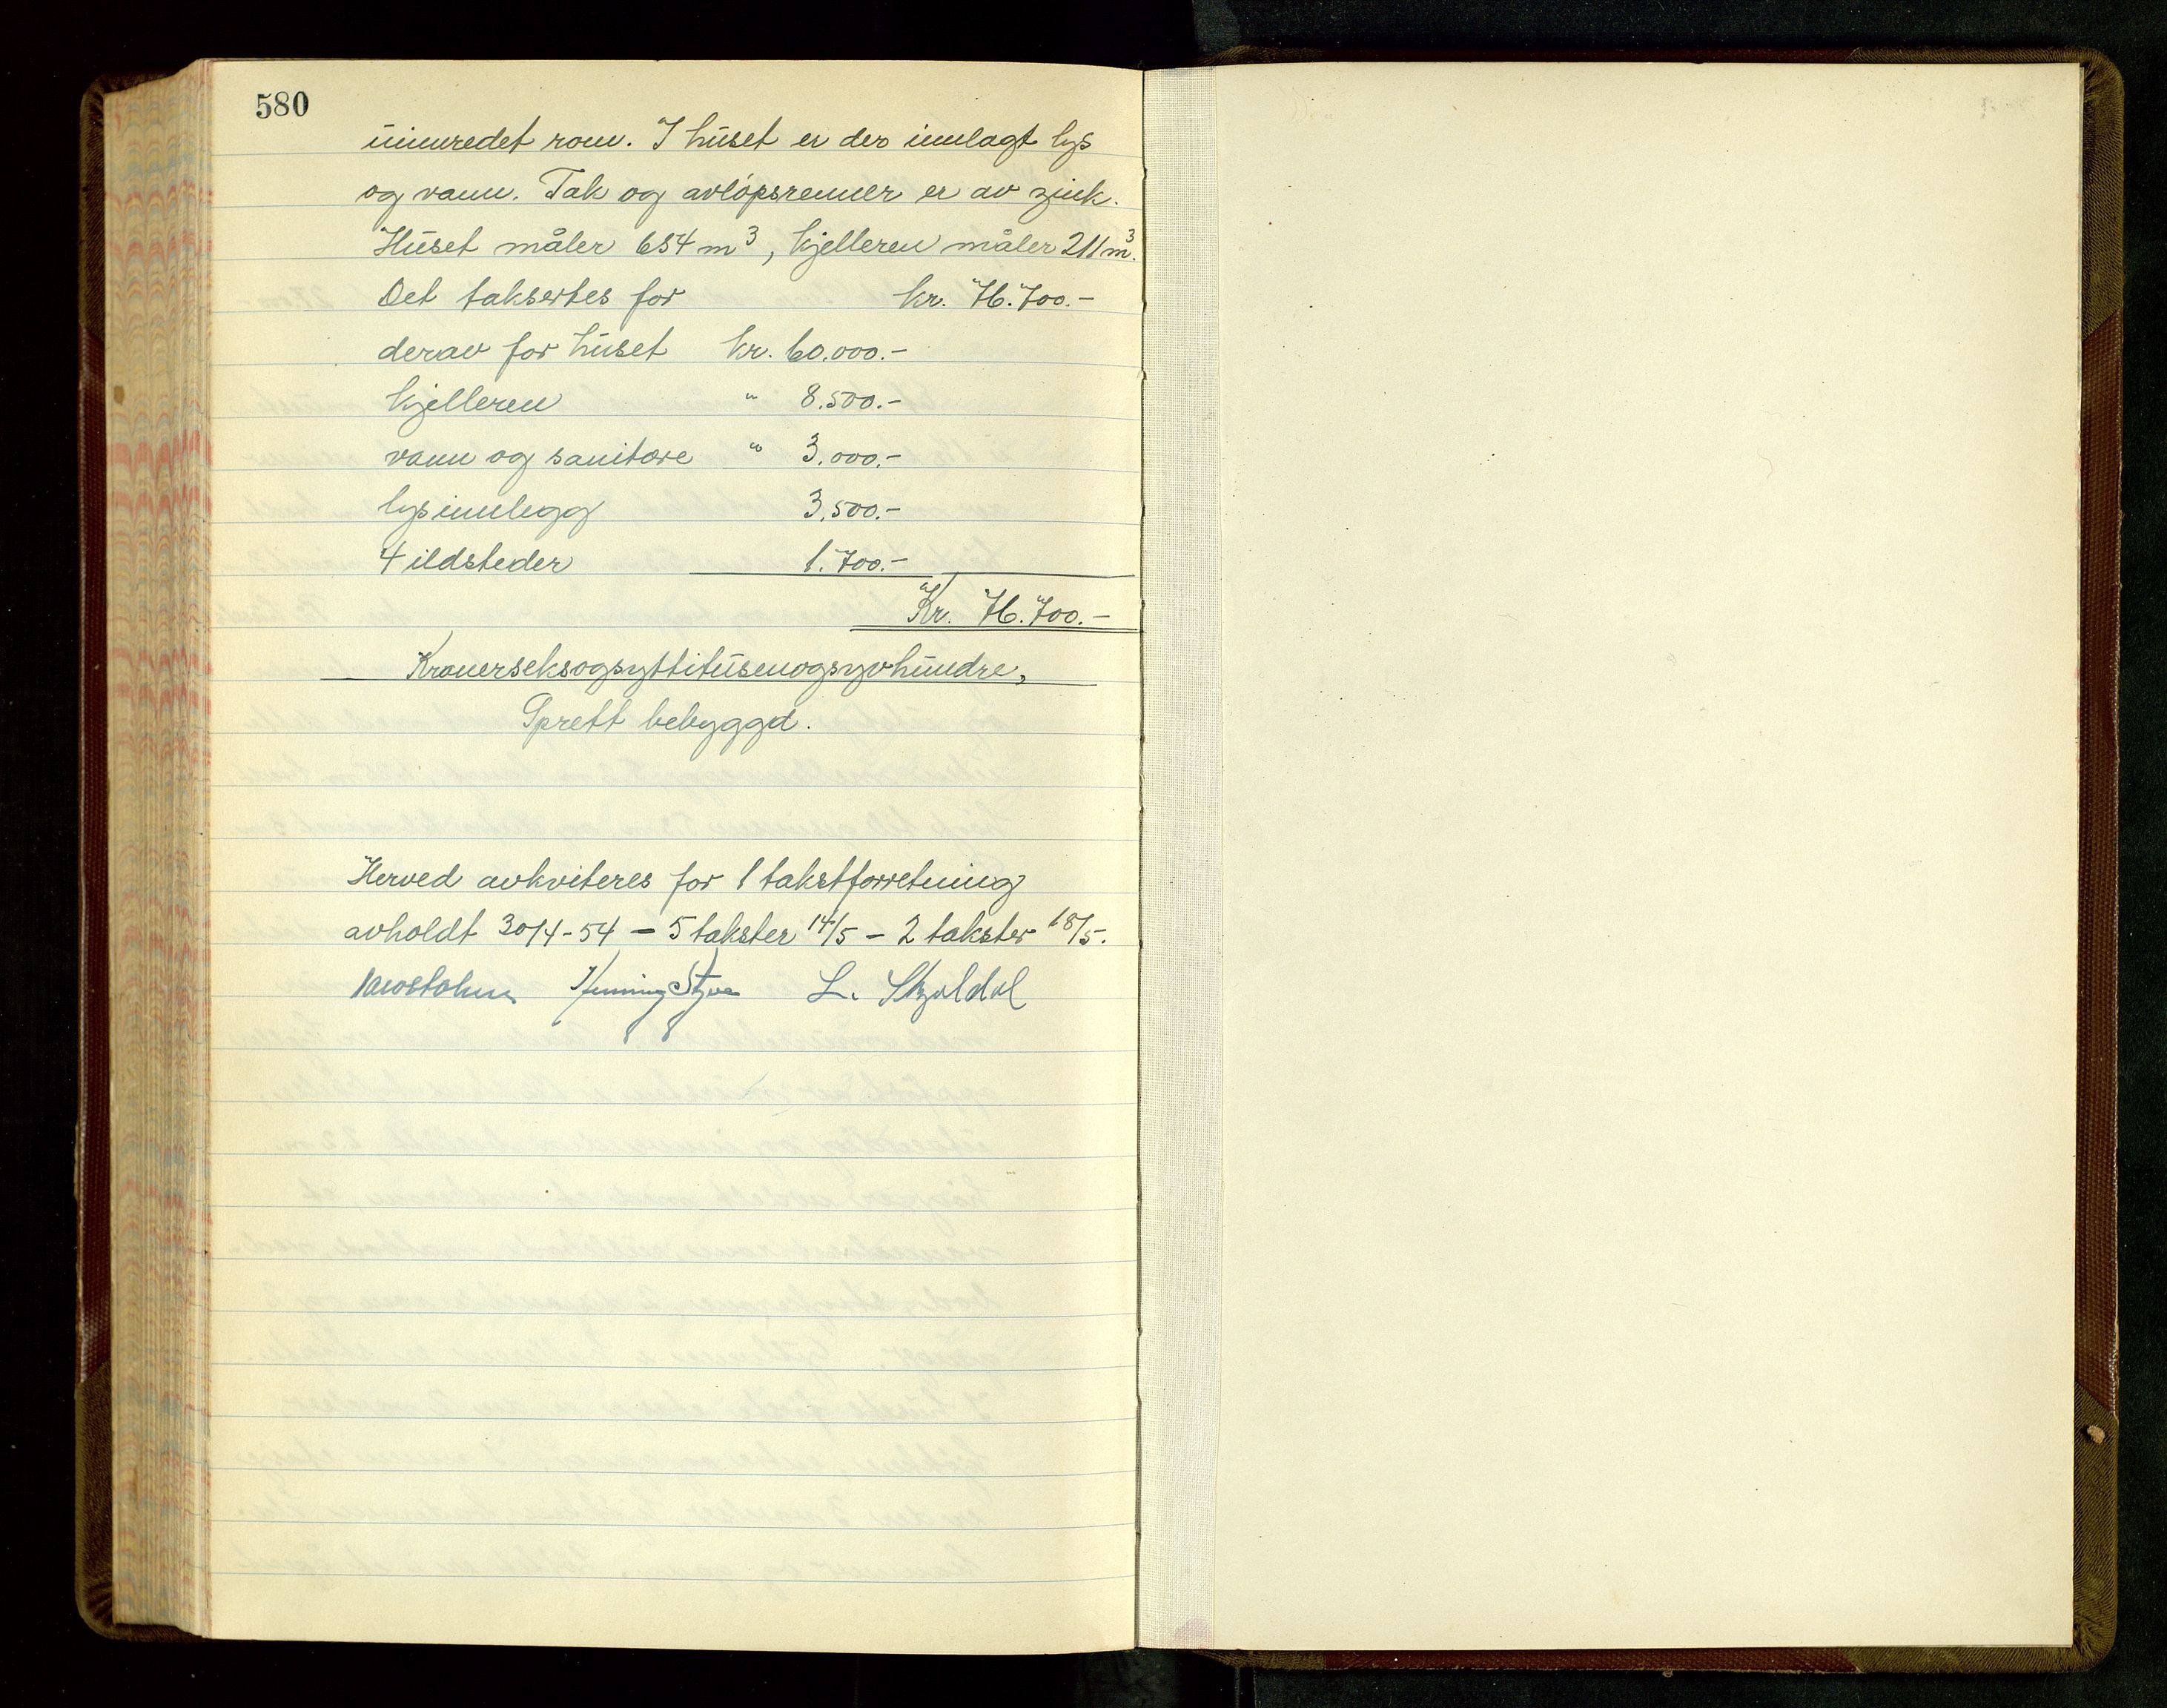 580
uinnredet rom. I huset er der innlagt lys
og vann. Tak og avløpsrenner er av zink.
Huset måler 654 m³, kjelleren måler 211 m³.
Det taksertes for kr. 76.700.-
derav for huset kr. 60.000.-
kjelleren " 8.500.-
vann og sanitære " 3.000.-
lysinnlegg 3.500.-
4 ildsteder 1.700.-
Kr. 76.700.-
Kronerseksogsyttitusenogsyvhundre,
Sprett bebyggd.
Herved avkviteres for 1 takstforretning
avholdt 30/4-54 – 5 takster 14/5 – 2 takster 18/5.
Henning Styve L. Skjoldal